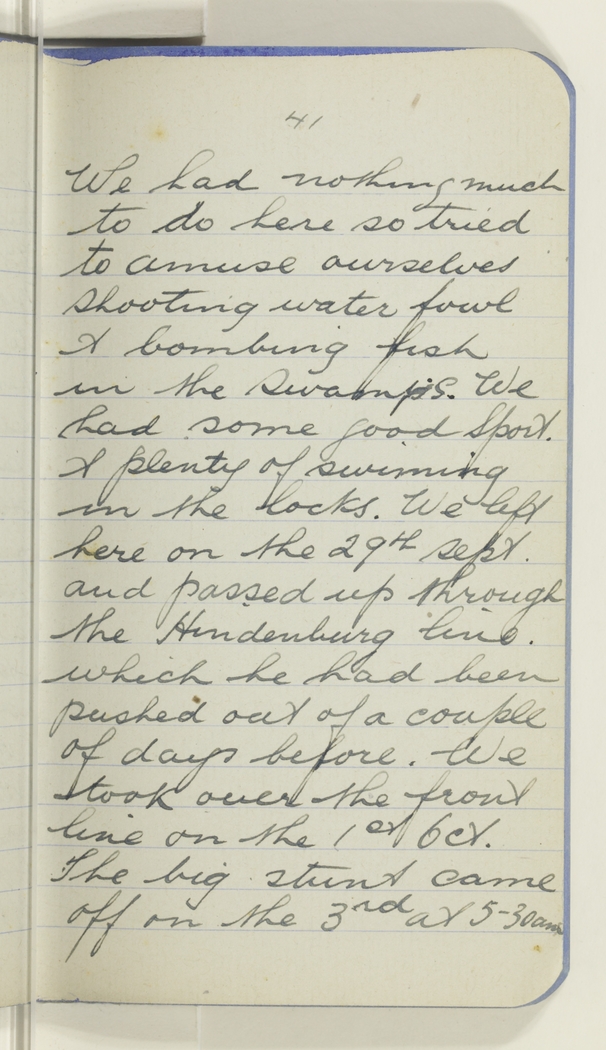 41
We had nothing much
to do here so tried
to amuse ourselves
shooting water fowl
& bombing fish
in the swamps. We
had some good sport.
& plenty of swiming
in the locks. We left
here on the 29th sept.
and passed up through
the Hindenburg line.
which he had been
pushed out of a couple
of days before. We
took over the front
line on the 1st Oct.
The big stunt came
off on the 3rd at 5-30am